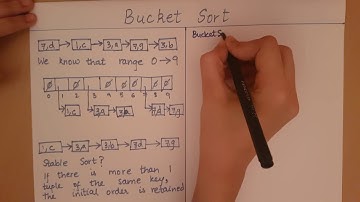 Bucket Sort
7,d 1,c 3,a 7,g 3,b
We know that range 0 → 9
Ø Ø Ø Ø Ø Ø
0 1 2 3 4 5 6 7 8 9
1,c 3,a 7,d 7,g
1,c 3,a 3,b 7,d 7,g
Stable Sort?
If there is more than 1
tuple of the same key,
the initial order is retained
Bucket S